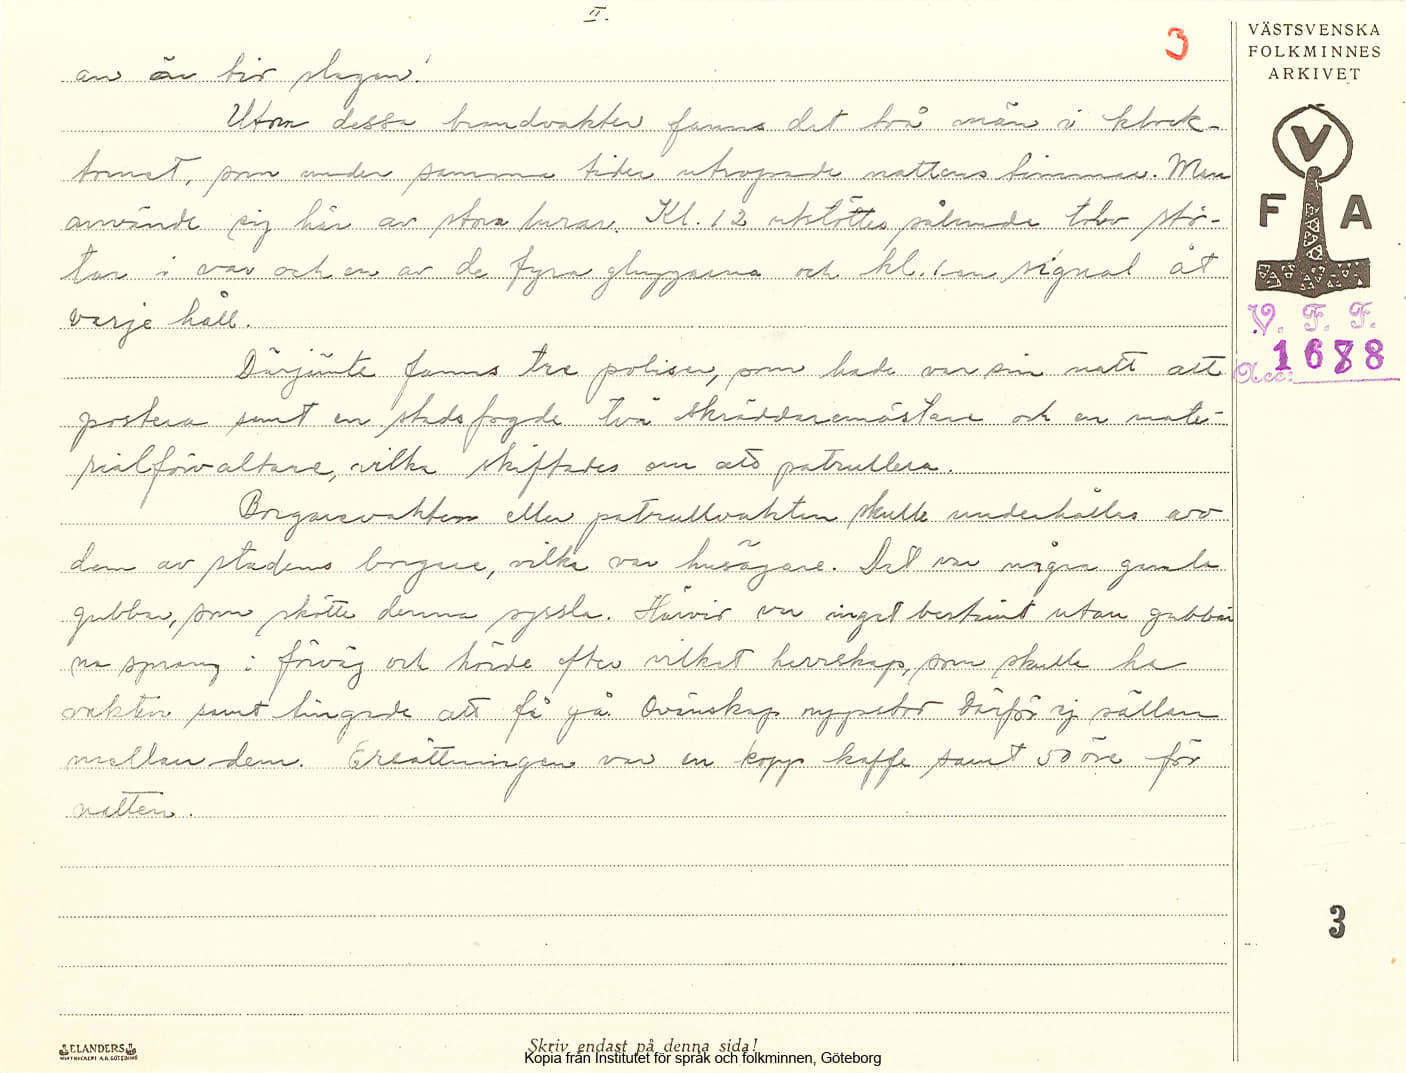 II.
3
an än tir slagen!
Utom dessa brandvakter fanns det två män i klock-
tornet, som under samma tider utropade nattens timmar. Man
använde sig här av stora lurar. Kl. 12 utstöttes sålunda tolv stö-
tar i var och en av de fyra gluggarna och kl. 1 en signal åt
varje håll.
Därjämte fanns tre poliser, som hade var sin natt att
postera samt en stadsfogde två skräddaremästare och en mate-
rialförvaltare, vilka skiftades om att patrullera.
Borgarevakten eller patrullvakten skulle underhålles av
dem av stadens borgare, vilka var husägare. Det var några gamla
gubbar, som skötte denna syssla. Härvid var inget bestämt utan gubbar
na sprang i förväg och hörde efter vilket herrskap, som skulle ha
vakten samt tingade att få gå. Ovänskap uppstod därför ej sällan
mellan dem. Ersättningen var en kopp kaffe samt 50 öre för
natten.
VÄSTSVENSKA
FOLKMINNES
ARKIVET
V
F A
V. F. F.
Acc: 1688
3
ELANDERS
Skriv endast på denna sida!
Kopia från Institutet för språk och folkminnen, Göteborg